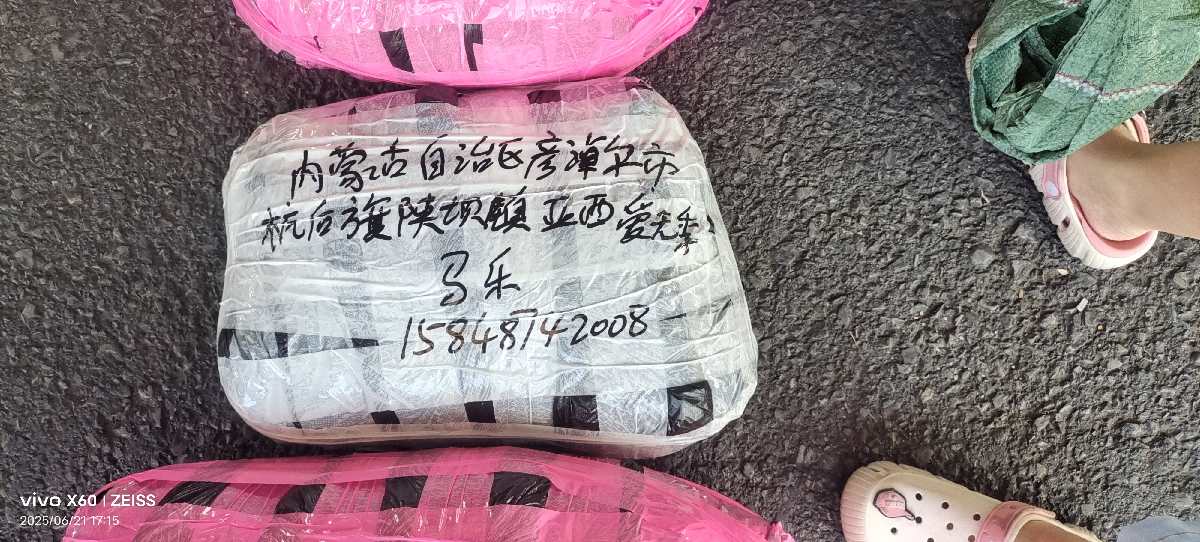 内蒙古自治区彦淖尔市
杭后旗陕坝镇亚西爱先
马乐
15848142008
vivo X60 | ZEISS
2025/06/21 17:15